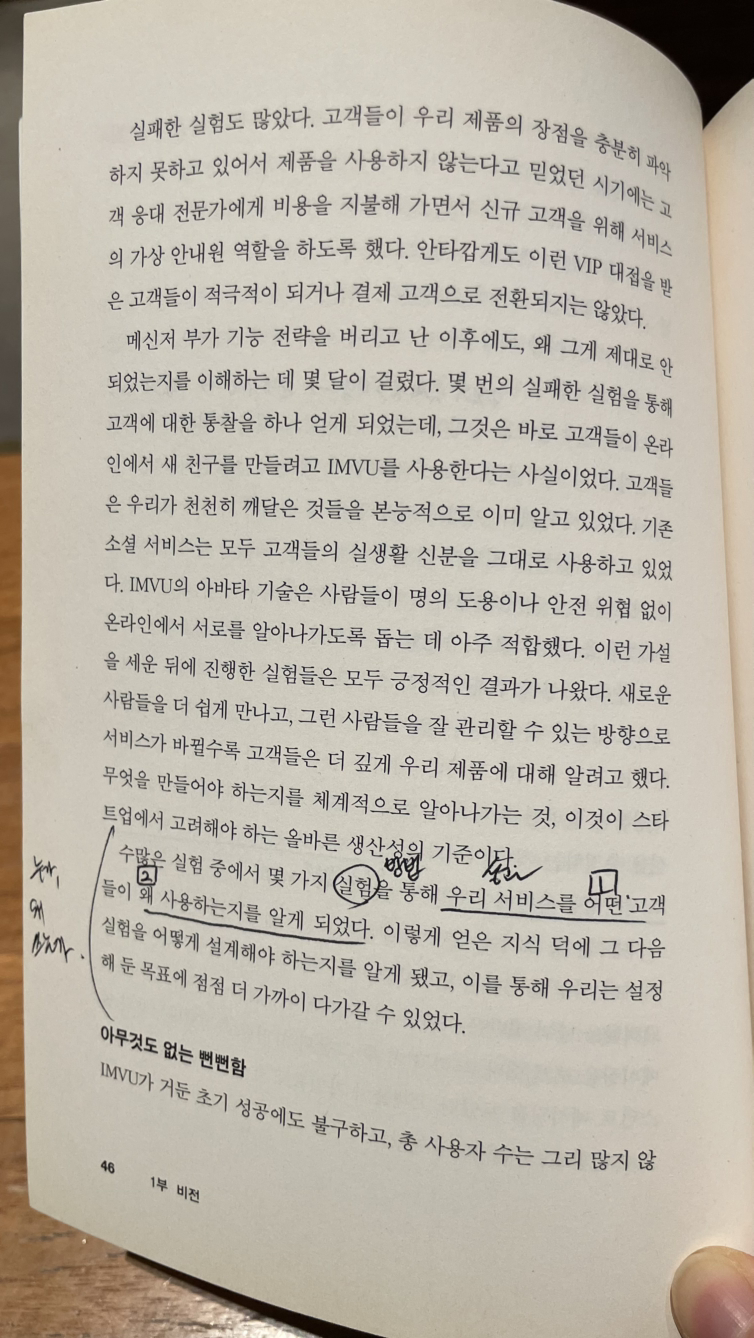 실패한 실험도 많았다. 고객들이 우리 제품의 장점을 충분히 파악
하지 못하고 있어서 제품을 사용하지 않는다고 믿었던 시기에는 고
객 응대 전문가에게 비용을 지불해 가면서 신규 고객을 위해 서비스
의 가상 안내원 역할을 하도록 했다. 안타깝게도 이런 VIP 대접을 받
은 고객들이 적극적이 되거나 결제 고객으로 전환되지는 않았다.
메신저 부가 기능 전략을 버리고 난 이후에도, 왜 그게 제대로 안
되었는지를 이해하는 데 몇 달이 걸렸다. 몇 번의 실패한 실험을 통해
고객에 대한 통찰을 하나 얻게 되었는데, 그것은 바로 고객들이 온라
인에서 새 친구를 만들려고 IMVU를 사용한다는 사실이었다. 고객들
은 우리가 천천히 깨달은 것들을 본능적으로 이미 알고 있었다. 기존
소셜 서비스는 모두 고객들의 실생활 신분을 그대로 사용하고 있었
다. IMVU의 아바타 기술은 사람들이 명의 도용이나 안전 위협 없이
온라인에서 서로를 알아나가도록 돕는 데 아주 적합했다. 이런 가설
을 세운 뒤에 진행한 실험들은 모두 긍정적인 결과가 나왔다. 새로운
사람들을 더 쉽게 만나고, 그런 사람들을 잘 관리할 수 있는 방향으로
서비스가 바뀔수록 고객들은 더 깊게 우리 제품에 대해 알려고 했다.
무엇을 만들어야 하는지를 체계적으로 알아나가는 것, 이것이 스타
트업에서 고려해야 하는 올바른 생산성의 기준이다.
방법
수많은 실험 중에서 몇 가지 실험을 통해 우리 서비스를 어떤 고객
2
1
들이 왜 사용하는지를 알게 되었다. 이렇게 얻은 지식 덕에 그 다음
왜
실험을 어떻게 설계해야 하는지를 알게 됐고, 이를 통해 우리는 설정
해 둔 목표에 점점 더 가까이 다가갈 수 있었다.
아무것도 없는 뻔뻔함
IMVU가 거둔 초기 성공에도 불구하고, 총 사용자 수는 그리 많지 않
46
1부 비전